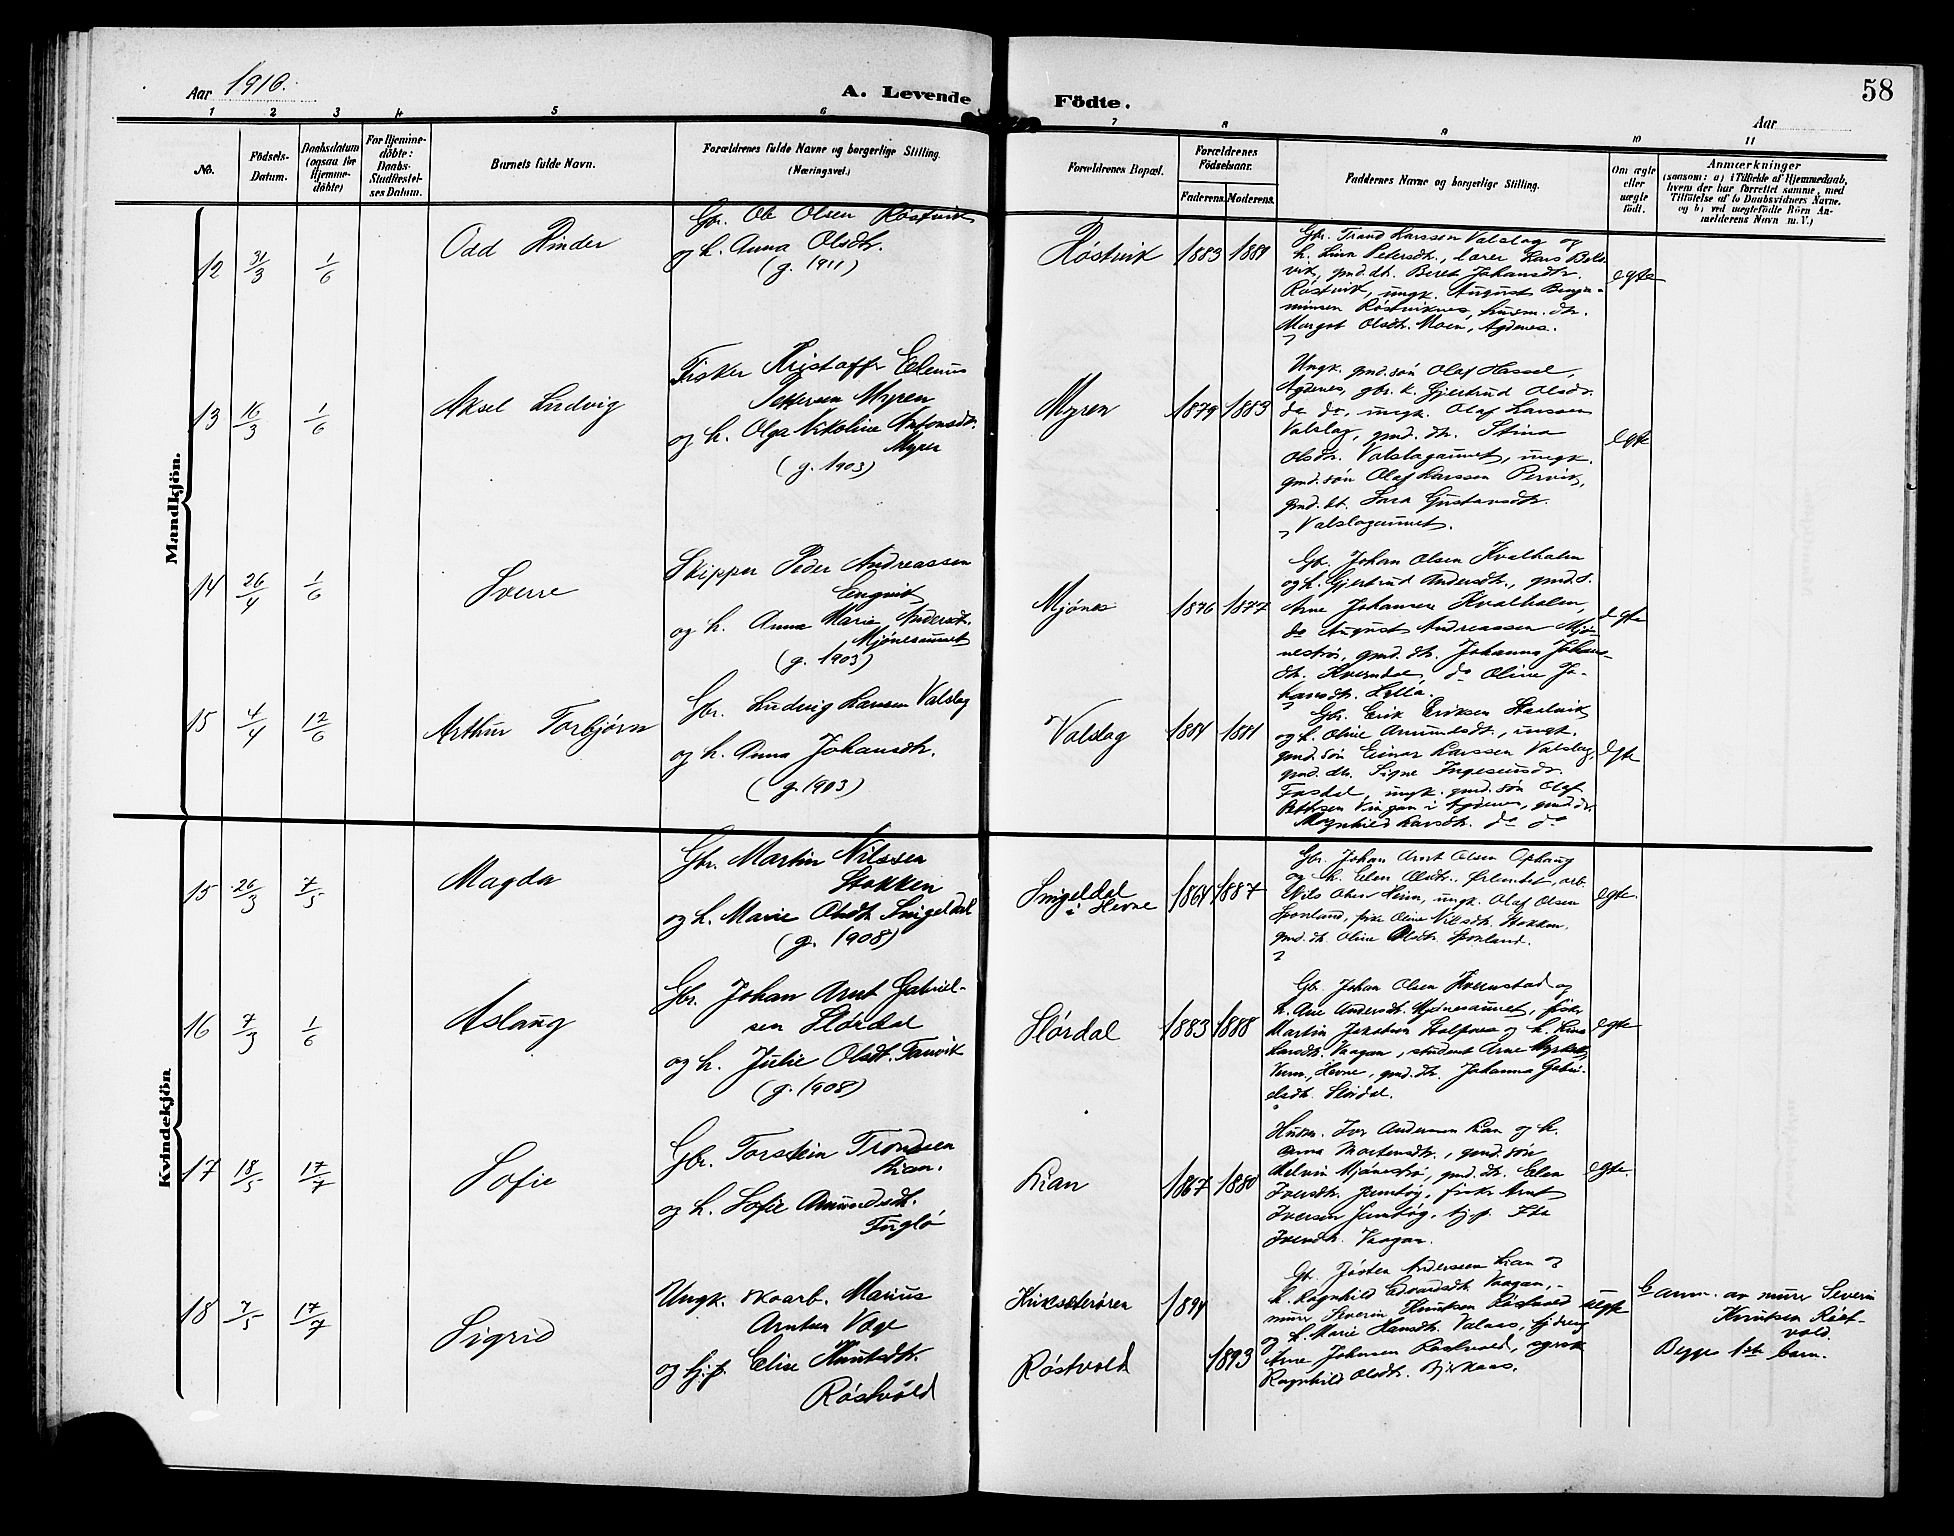 58
Aar 1916.
A. Levende Födte.
Aar
1 2 3 4 5 6 7 8 9 10 11
No.
Födsels-Datum.
Daabsdatum (ogsaa for Hjemmedöbte)
For Hjemmedöbte: Daabs-Stadfæstelses Datum.
Barnets fulde Navn.
Forældrenes fulde Navne og borgerlige Stilling. (Næringsvei.)
Forældrenes Bopæl.
Forældrenes Födselsaar.
Faderens. Moderens.
Faddernes Navne og borgerlige Stilling.
Om ægte eller uægte født.
Anmærkninger
(saasom: a) i Tilfælde af Hjemmedaab,
hvem der har forrettet samme, med
Tilföielse af to Daabsvidners Navne.
og b) ved uægtefödte Börn An-
mælderens Navn m. V.)
Mandkjön.
12 31/3 1/6 Odd Rinder
Gbr. Ole Olsen Röstvik
og h. Anna Olsdtr.
(g. 1911)
Röstvik 1883 1889
Gbr. Trand Larssen Valslag og
h. Lina Petersdtr., lærer Lars Bols-
vik, gmd.dtr. Beret Johansdtr.
Röstvik, ungk. August Benja-
minsen Röstviknes, husm. dtr.
Margot Olsdtr. Moen, Agdenes.
egte
13 16/3 1/6 Aksel Ludvig
Fisker Kristoffr Elenus
Pettersen Myren
og h. Olga Nikoline Antonsdtr.
Myren
(g. 1903)
Myren 1879 1883
Ungk. gmd.søn Olaf Hassel,
Agdenes, gbr. k. Gjertrud Olsdtr.
do do, ungk. Olaf Larssen
Valslag, gmd. dtr. Stina
Olsdtr. Valslagaunet, ungk.
gmd. søn Olaf Larssen Pervik,
gmd. dt. Sara Gustavsdtr.
Valslagaunet.
egte
14 26/4 1/6 Sverre
Skipper Peder Andreassen
Engvik
og h. Anna Marie Andersdt.
Mjönesaunet
(g. 1903)
Mjönes 1876 1877
Gbr. Johan Olsen Kvalhalen
og h. Gjertrud Andersdtr., gmd.s.
Arne Johansen Kvalhalen,
do August Andreassen Mjö-
neströ, gmd. dtr. Johanna Johans-
dtr. Kverndal, do Oline Jo-
hansdtr. Lillö.
egte
15 4/4 12/6 Arthur Torbjørn
Gbr. Ludvig Larssen Valslag
og h. Anna Johansdtr.
(g. 1903)
Valslag 1884 1881
Gbr. Erik Eriksen
og h. Oline Amundsdt., ungk.
gmd. søn Einar Larssen Valslag,
gmd. dtr. Signe
ungk. gmd. søn Olaf
Pettersen Vingan i Agdenes, gmd. dtr.
Magnhild Larsdtr. do do
egte
Kvindekjön
15 26/3 7/5 Magda
Gbr. Martin Nilssen
Stokken
og h. Marie Olsdtr. Snigeldal
(g. 1908)
Snigeldal
i Hevne 1864 1887
Gbr. Johan Arnt Olsen Ophaug
og h. Elen Olsdtr., Ørlandet, arb.
Nils Olsen Heim, ungk. Olaf Olsen
Sponland, pike Oline Nilsdtr. Stokken,
gmd. dtr. Oline Olsdtr. Sponland.
egte.
16 7/3 1/6 Aslaug
Gbr. Johan Arnt Gabriel-
sen Slørdal
og h. Julie Olsdt. Tanvik
(g. 1908)
Slørdal 1883 1888
Gbr. Johan Olsen Kvernstad og
h. Ane Andersdt. Mjönesaunet, fisker
Martin Jakobsen og h. Lina
Larsdtr. Vaagan, student Arne
Hevne, gmd. dtr. Johanna Gabri-
elsdtr. Slørdal.
egte
17 18/5 17/7 Sofie
Gbr. Torstein Trondsen
Lian.
og h. Sofie Amundsdt.
Fuglö
Lian 1867 1880
Husm. Iver Andersen Lian og h.
Anna Mortensdtr., gmd. søn
Melvin Mjöneströ, gmd. dtr. Elen
Iversdtr. Jamtøy, fisker Arnt
Iversen Jamtøy, tj.p. Ida
Iversdt. Vaagan.
egte.
18 7/5 17/7 Sigrid
Ungk. skoarb. Marius
Arntsen Vage
og tj.p. Elise Knutsdtr.
Röstvold
Kirksæterören 1894
Röstvold 1893
Gbr. Jösten Andersen Lian og
h. Ragnhild Edvardsdt. Vaagan,
murer Severin Knutsen Röstvold
og h. Marie Hansdtr. Valaas, tj.dreng
Arne Johnsen Röstvold, og pik
Ragnhild Olsdtr. Bjerkaas.
uegte
anm. av murer Severin
Knutsen Röst-
vold.
Begges 1ste barn.